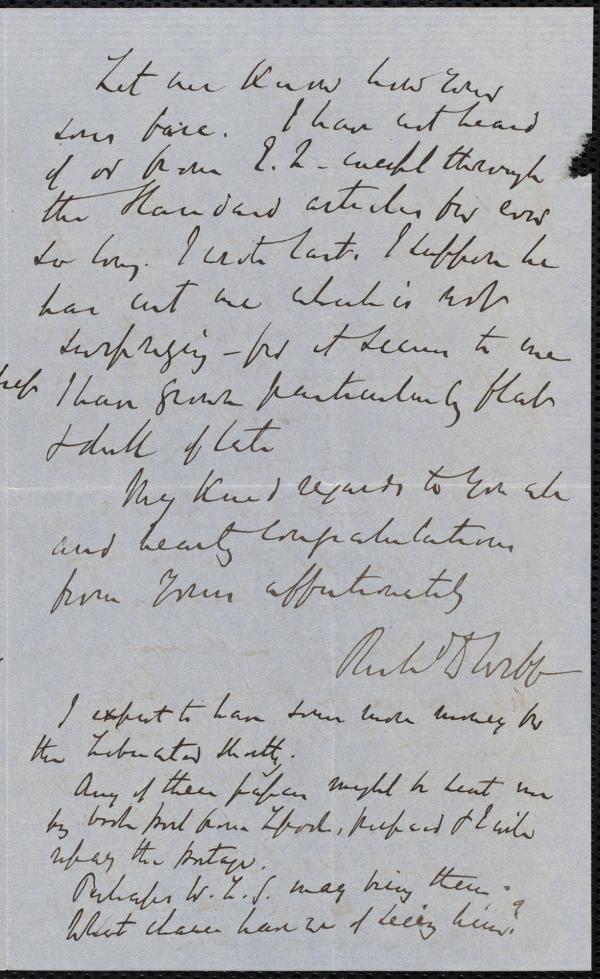 Let me know how your
sons fare. I have not heard
of or from E. Q. - except through
the Standard articles for ever
so long. I wrote last. I suppose he
has cut me which is not
surprising - for it seems to me
I have grown particularly flat
& dull of late
My kind regards to you all
and hearty congratulations
from yours affectionately
Rich'd D Webb
I expect to have some more money for
the Liberator shortly.
Any of these papers might be sent me
by book post from Lpool, prepaid & I will
repay the postage.
Perhaps W. L. G. may bring them.
What chance have we of seeing him?